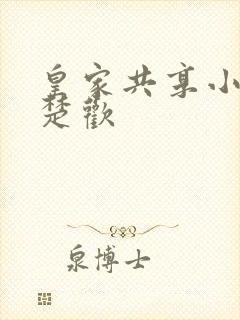 皇家共享小
楚歡
泉博士